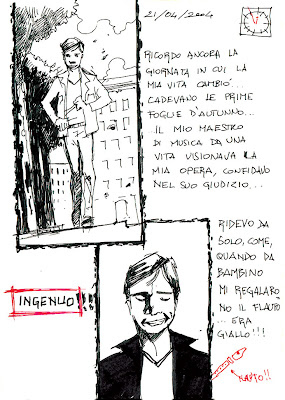 21/04/2004
RICORDO ANCORA LA
GIORNATA IN CUI LA
MIA VITA CAMBIÓ.
CADEVANO LE PRIME
FOGLIE D'AUTUNNO...
IL MIO MAESTRO
DI MUSICA DA UNA
VITA VISIONAVA LA
MIA OPERA, CONFIDAVO
NEL SUO GIUDIZIO...
RIDEVO DA
SOLO, COME,
QUANDO DA
BAMBINO
MI REGALARO
NO IL FLAUTO
... ERA
GIALLO!!!
INGENUO!!